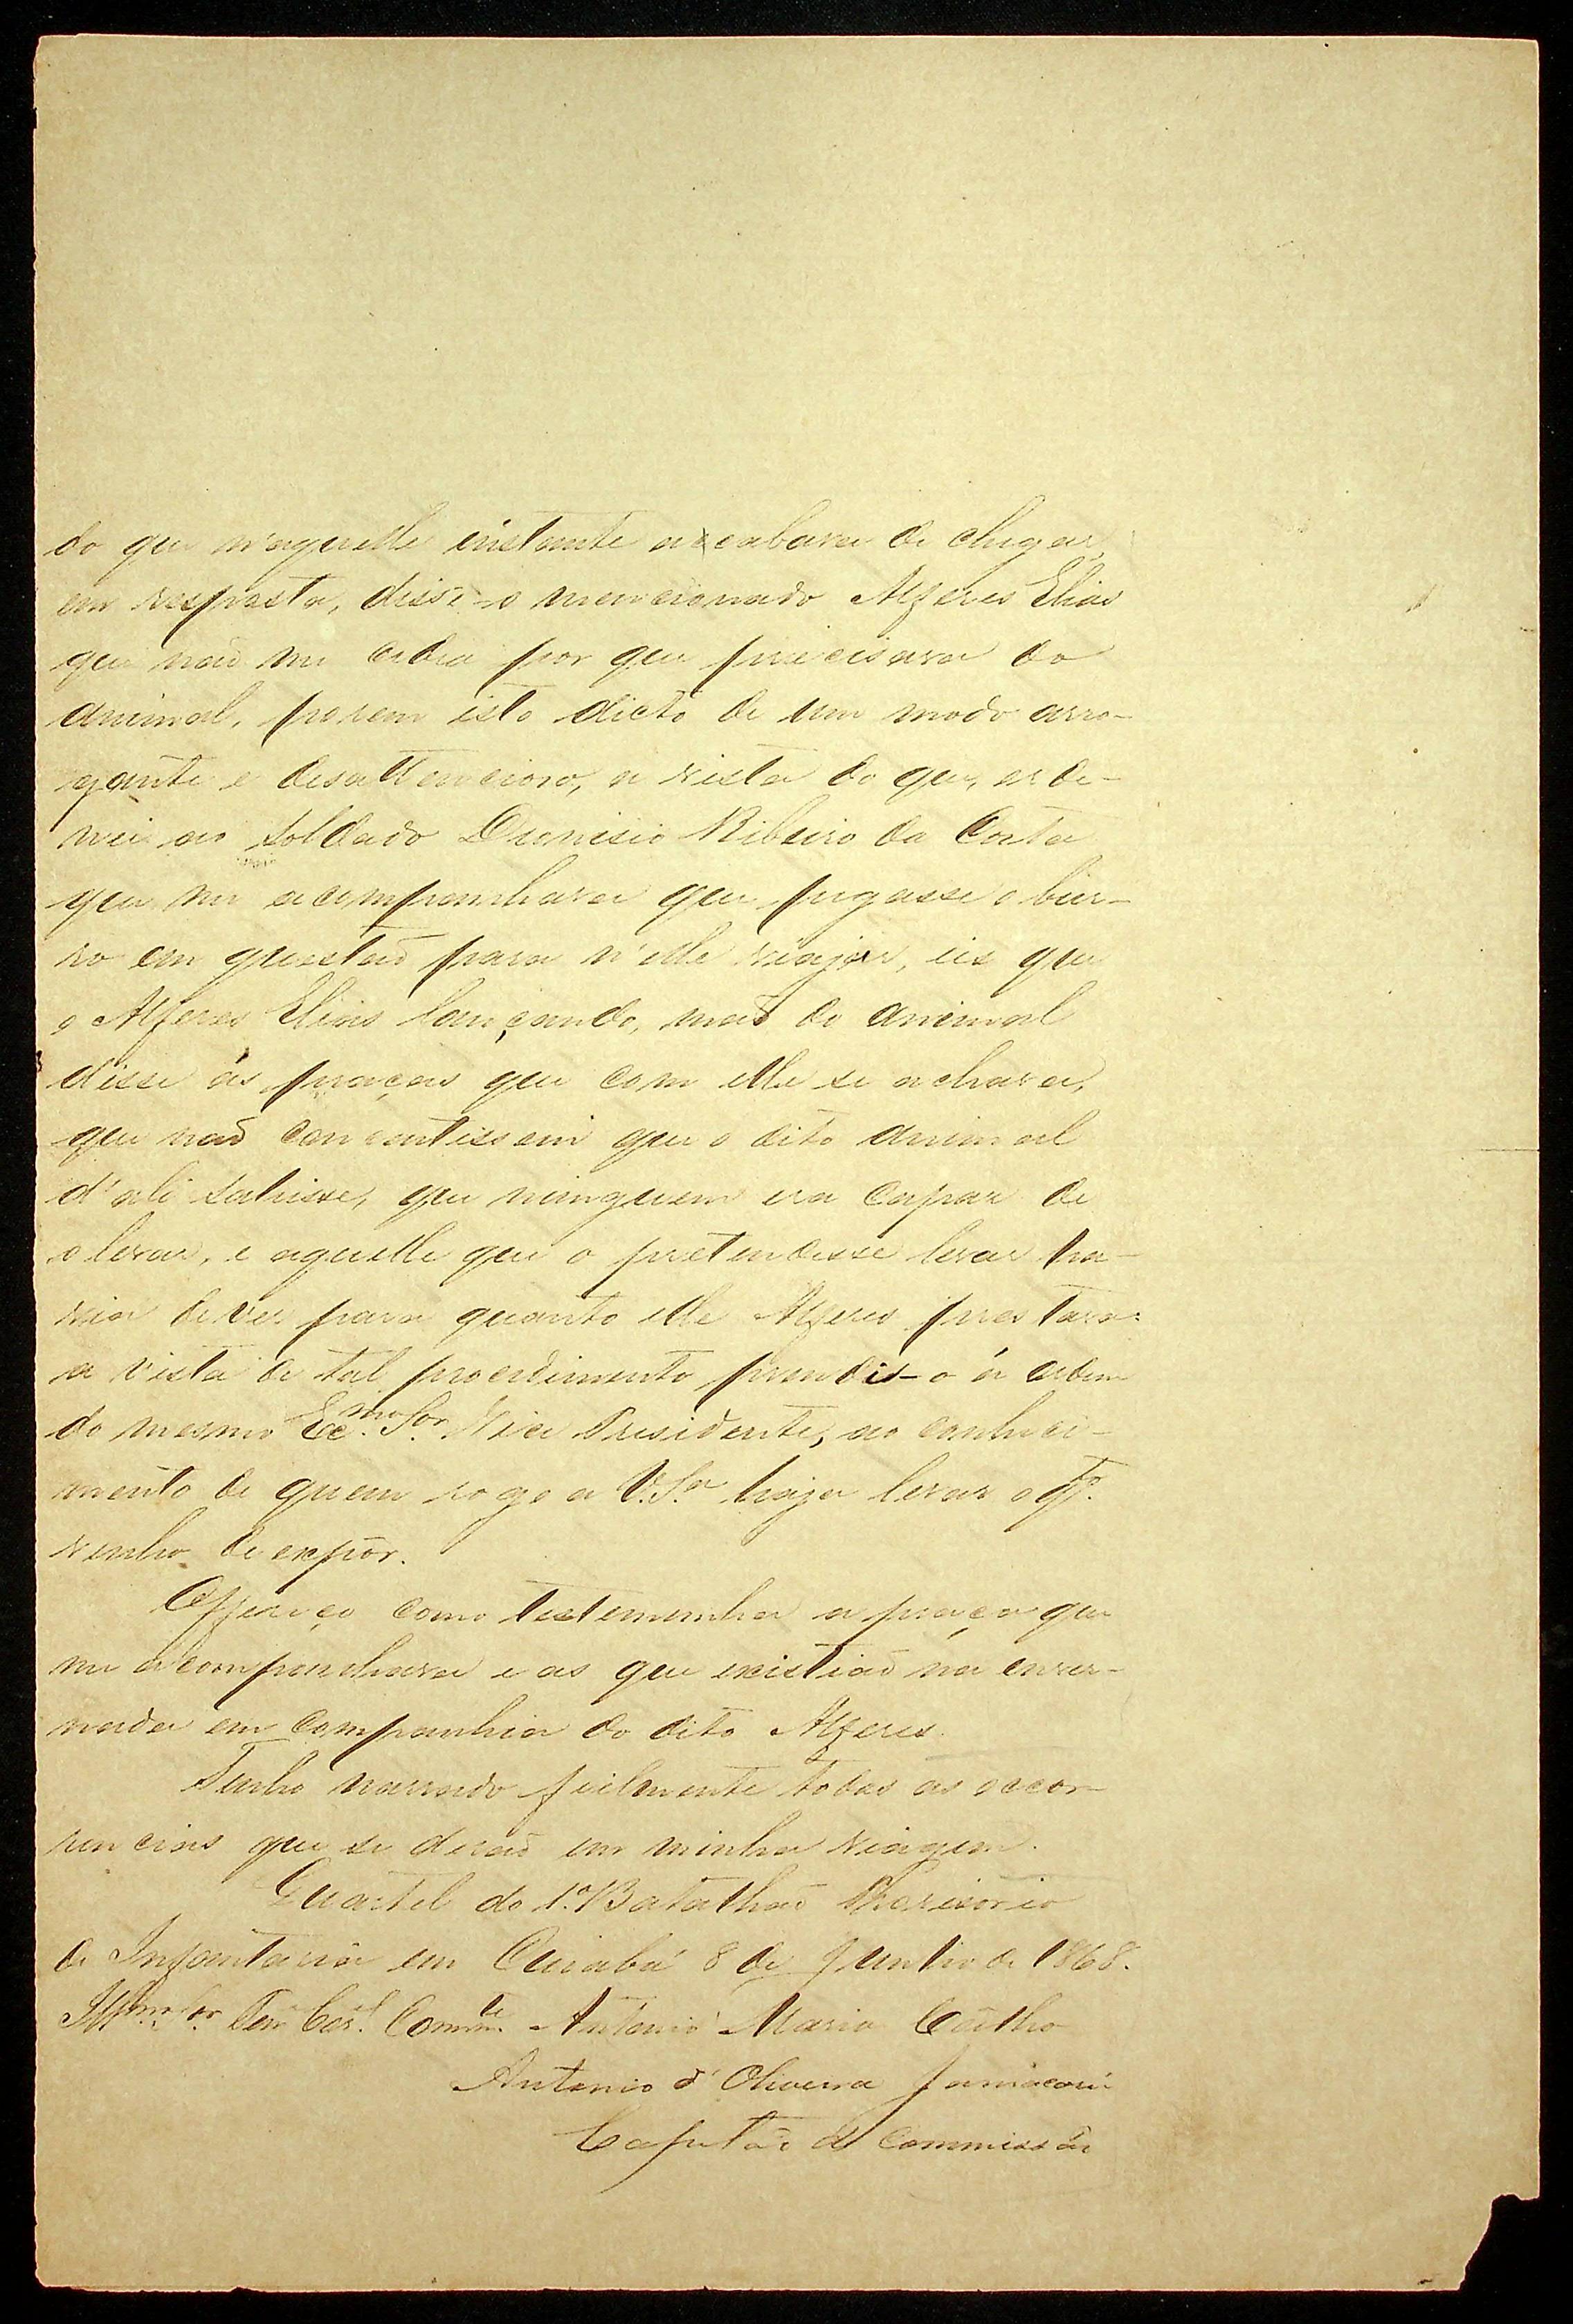 do que n'aquelle instante acabava de chegar,
em resposta, disse-o mencionado Alferes Elias
que naõ me cedia por que precisava do
animal, porem isto dicto de um modo arro-
gante e desattencioso, a vista do que, orde-
nei ao soldado Dionisio Ribeiro da Costa
que me acompanhava que pegasse o bur-
ro em questaõ para n'elle viajar, eis que
o Alferes Elias lançando, maõ do animal
disse ás praças que com elle se achava,
que naõ consentissem que o dito animal
d'ali sahisse, que ninguem era capaz de
o levar, e aquelle que o pretendesse levar ha-
via de ver para quanto elle Alferes prestava:
a vista de tal procedimento prendi-o á ordem
do mesmo Ex.mo Sor. Vice Presidente, ao conheci-
mento de quem rogo a V.Sa. haja levar o q.
venho de expôr.
Offereço como testemunha a praça que
me acompanhava e as que existiaõ na enver-
nada em companhia do dito Alferes.
Tenho narrado fielmente todas as occor-
rencias que se deraõ em minha viagem.
Quartel do 1.o Batalhaõ Provisorio
de Infantaria em Cuiabá 8 de Junho de 1868.
Ill.mo Sor. Ten Cor.el Comm.te Antonio Maria Coelho
Antonio d'Oliveira
Capitão de Commissão